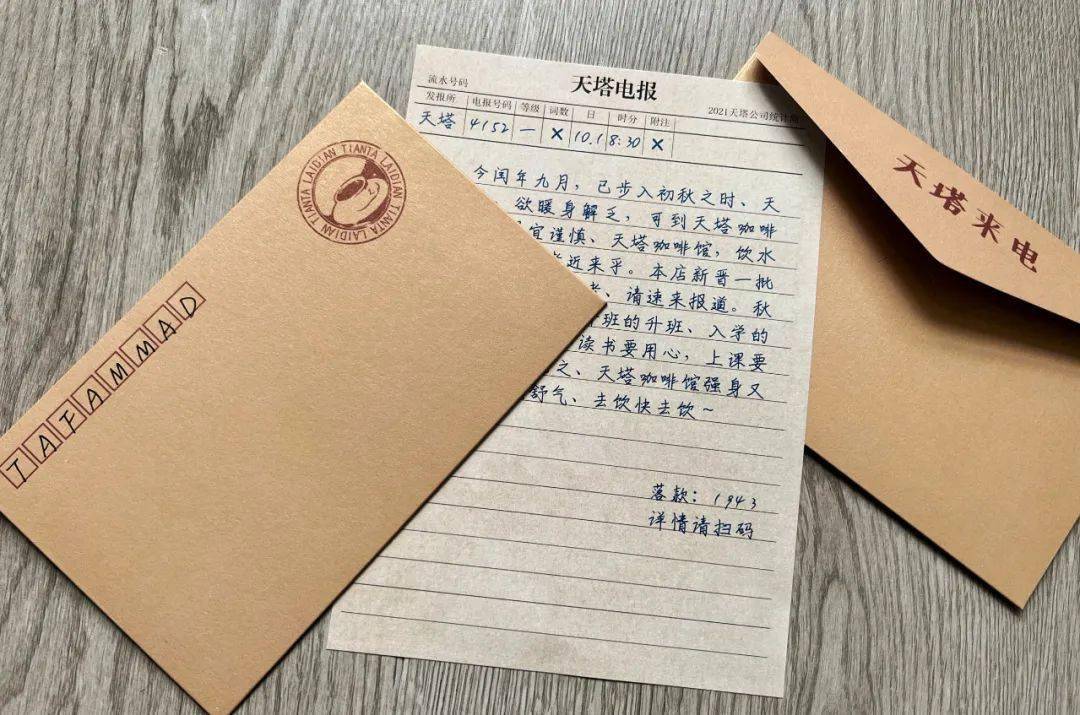 TIANTA LAIDIAN TIANTA LAIDIAN TIANTA LAIDIAN
TAFAMMAD
流水号码
天塔电报
2021天塔公司统计
发报所 电报号码 等级 词数 日 时分 附注
天塔 4152 一 × 10.1 8:30 ×
今闰年九月，已步入初秋之时、天
欲暖身解乏，可到天塔咖啡
宜谨慎、天塔咖啡馆，饮水
近来乎。本店新晋一批
请速来报道。秋
班的升班、入学的
读书要用心，上课要
之、天塔咖啡馆强身又
舒气、去饮快去饮~
落款：1943
详情请扫码
天塔来电